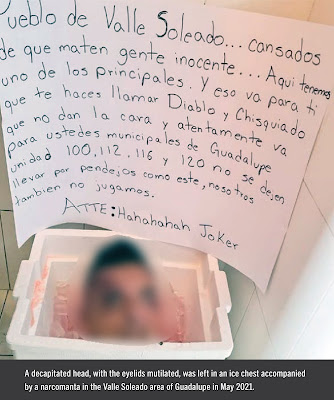 Pueblo de Valle Soleado... cansados
de que maten gente inocente... Aqui tenemos
uno de los principales. Y eso va para ti
que te haces llamar Diablo y Chisquiado
que no dan la cara y atentamente va
para ustedes municipales de Guadalupe
unidad 100, 112, 116 y 120 no se dejen
llevar por pendejos como este, nosotros
tambien no jugamos.
ATTE: Hahahahah Joker
A decapitated head, with the eyelids mutilated, was left in an ice chest accompanied
by a narcomanta in the Valle Soleado area of Guadalupe in May 2021.